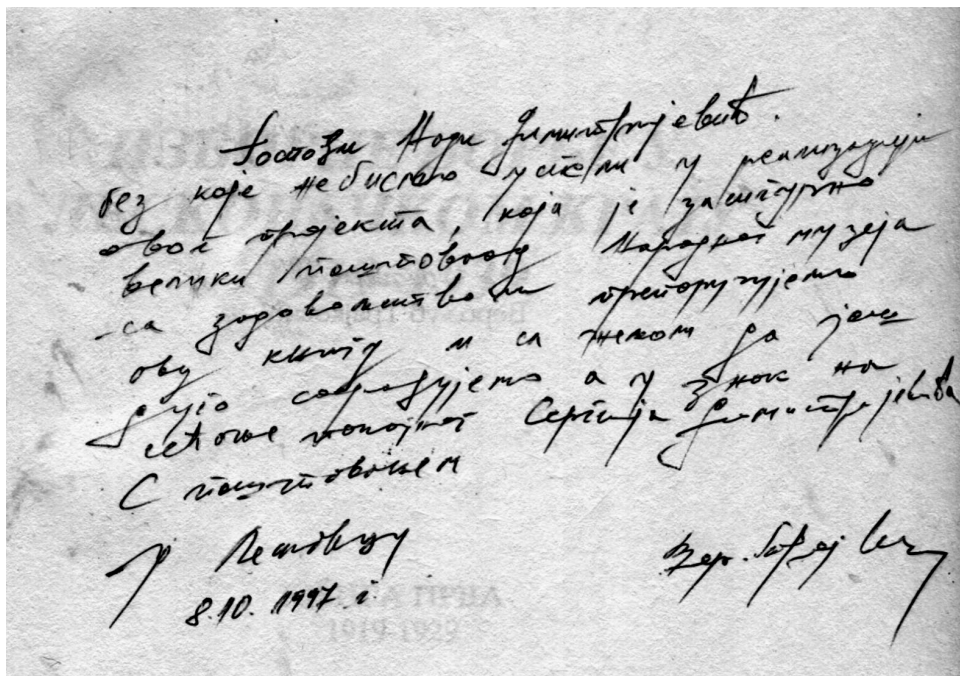 Госпођи Нади Димитријевић.
без које небисмо успели у реализацији
овог пројекта, која је засигурно
велики поштовалац Народног музеја
са задовољством препоручујемо
ову књигу и са жељом да још
дуго сарадујемо а у знак на
сећање покојног Сергија Димитријевића
С поштовањем
у Лесковцу
8.10.1997 г